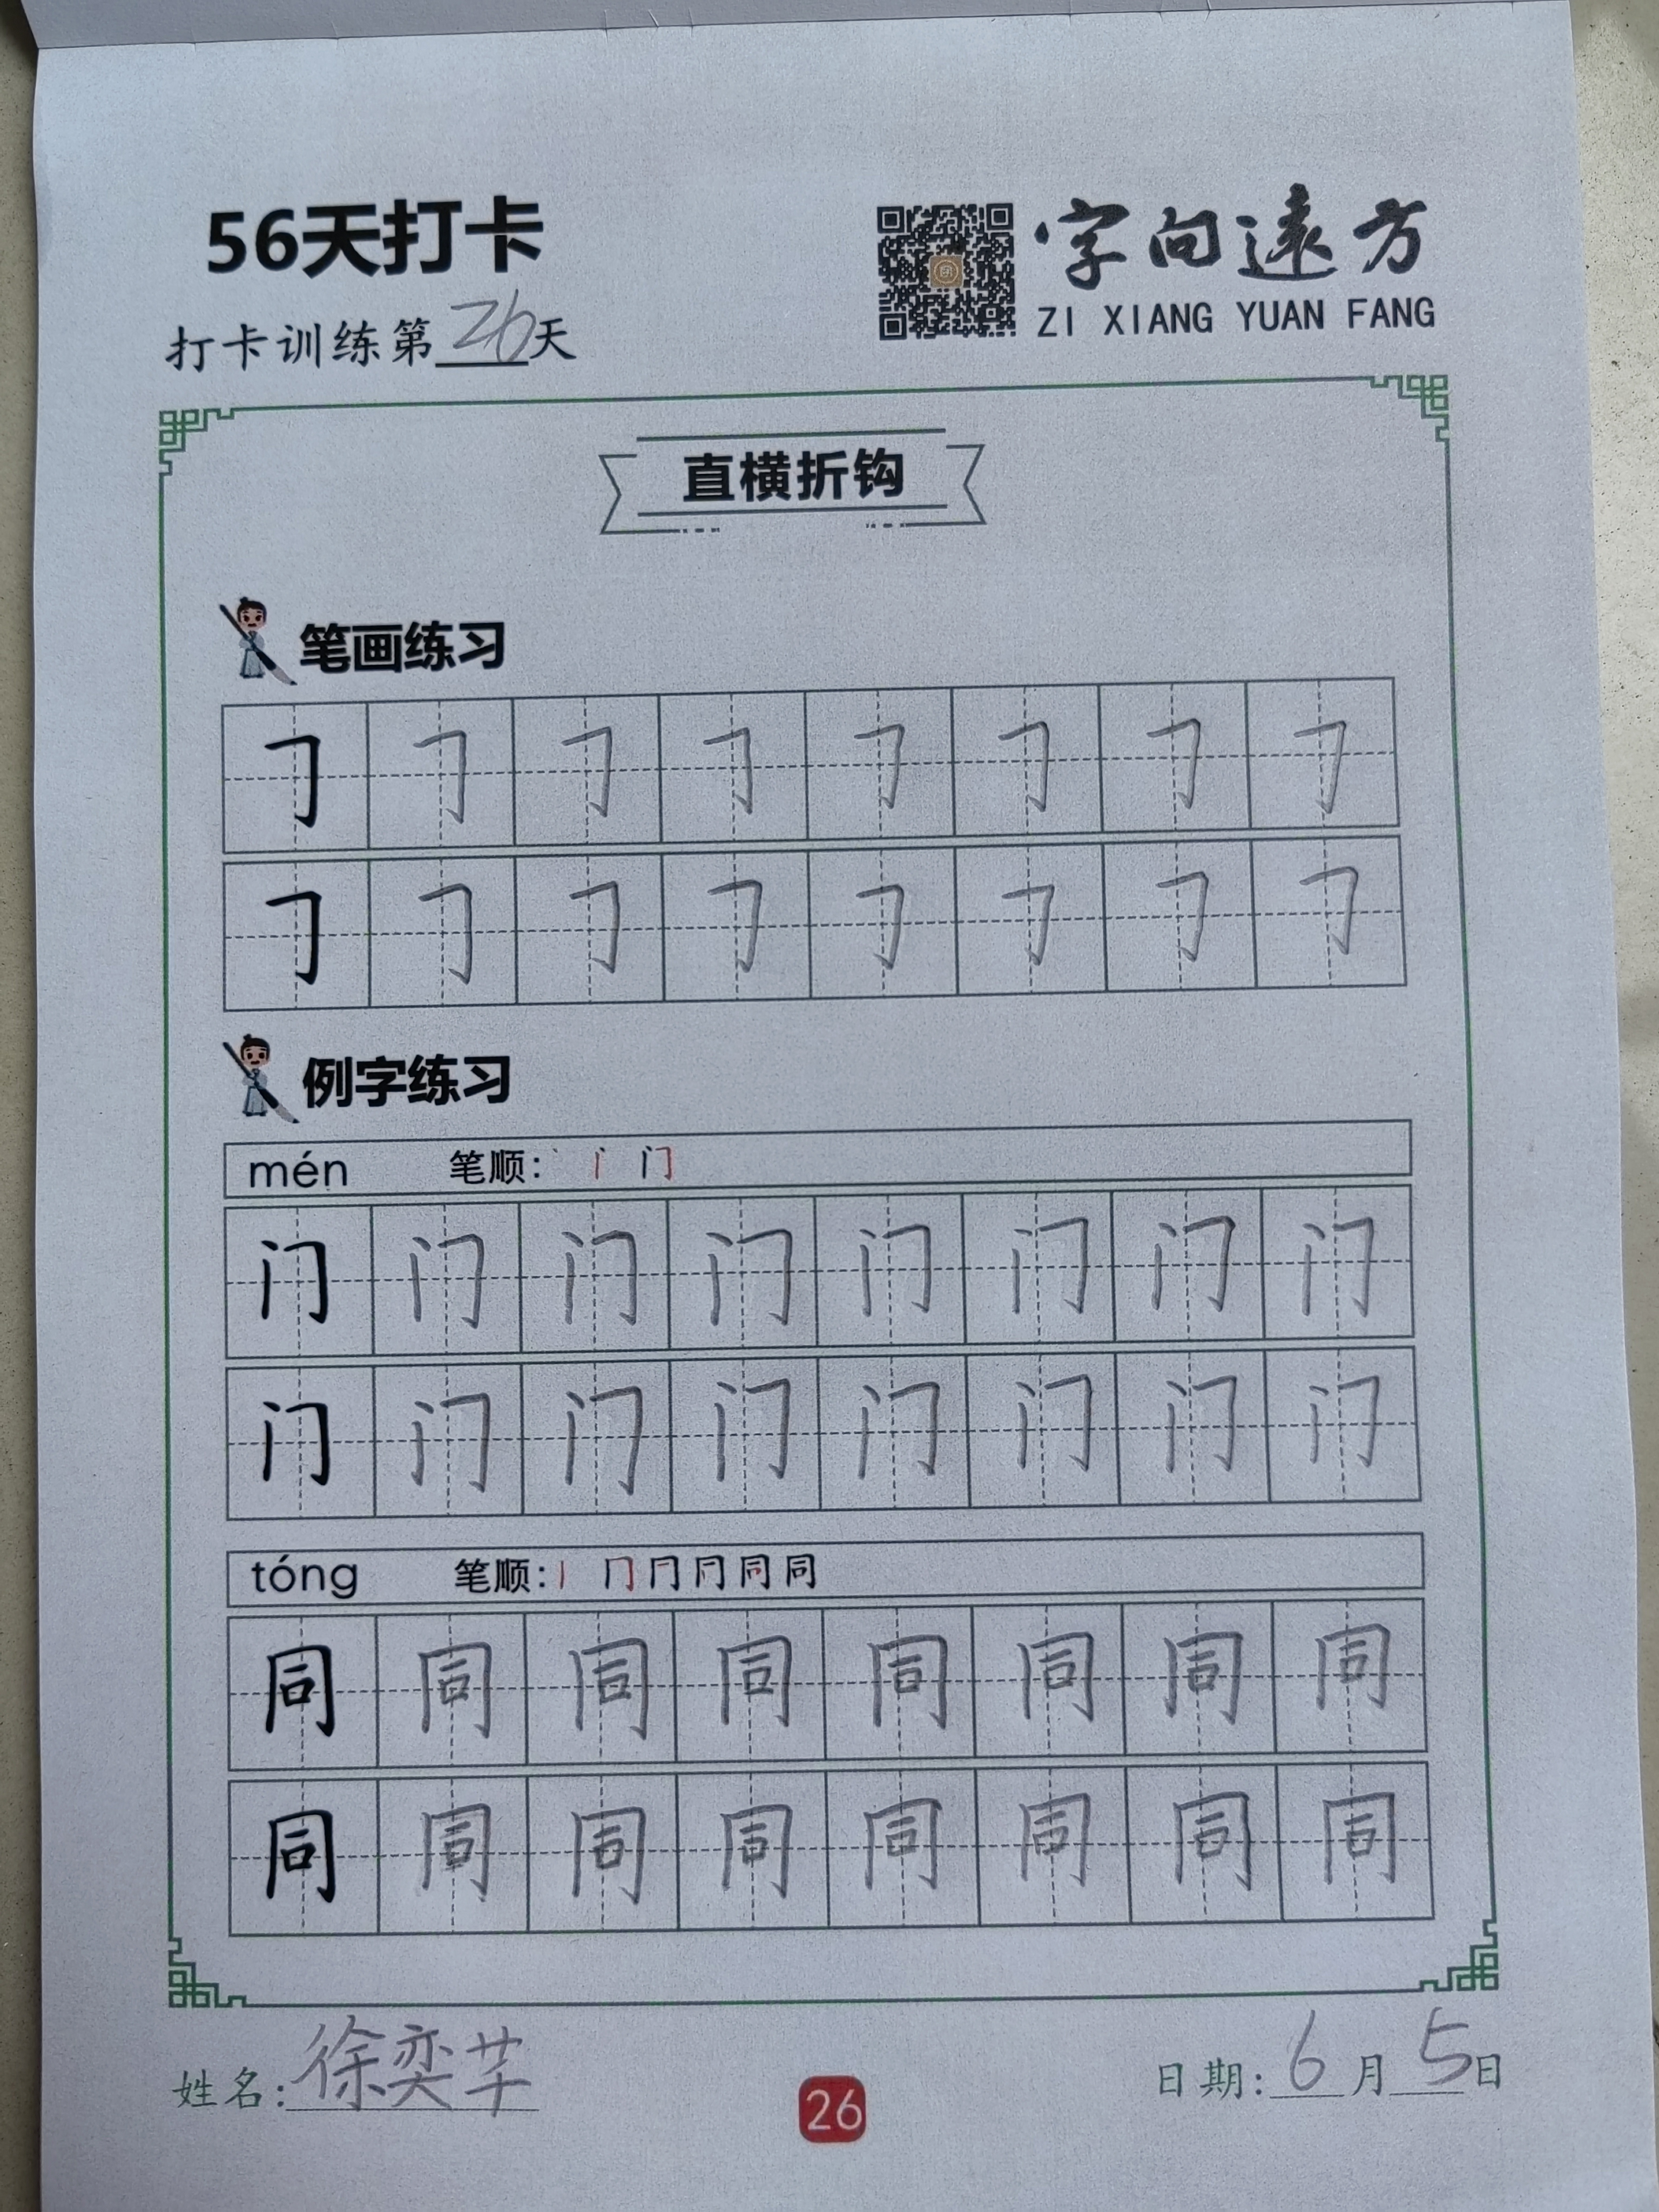 56天打卡
字向遠方
ZI XIANG YUAN FANG
打卡训练第26天
直横折钩
笔画练习
㇆ ㇆ ㇆ ㇆ ㇆ ㇆ ㇆ ㇆
㇆ ㇆ ㇆ ㇆ ㇆ ㇆ ㇆ ㇆
例字练习
mén 笔顺: 丶 门
门 门 门 门 门 门 门 门
门 门 门 门 门 门 门 门
tóng 笔顺: 丨 冂 同 同
同 同 同 同 同 同 同 同
同 同 同 同 同 同 同 同
姓名: 徐奕芊
26
日期: 6月5日